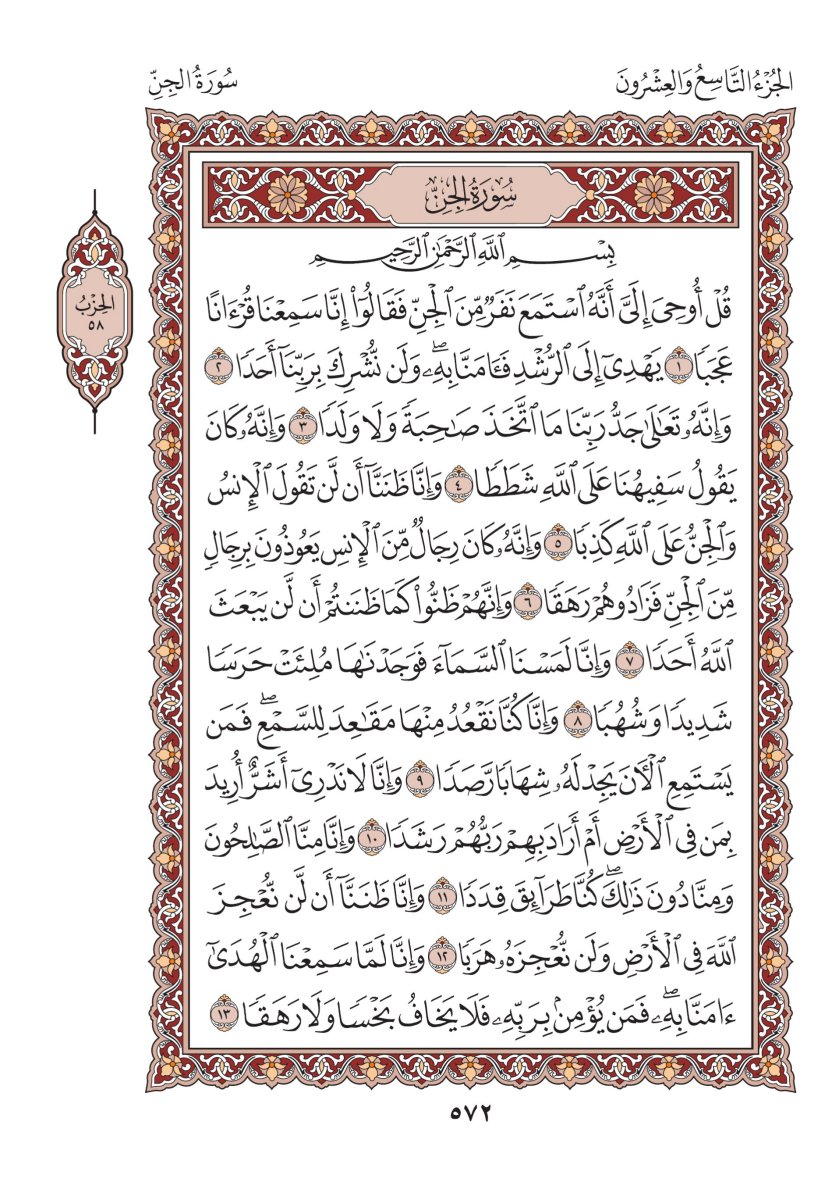 الجُزْءُ التَّاسِعُ وَالعِشْرُونَ
سُورَةُ الجِنِّ
سُورَةُ الجِنِّ
بِسْمِ ٱللَّهِ ٱلرَّحْمَٰنِ ٱلرَّحِيمِ
قُلْ أُوحِىَ إِلَىَّ أَنَّهُ ٱسْتَمَعَ نَفَرٌ مِّنَ ٱلْجِنِّ فَقَالُوٓا۟ إِنَّا سَمِعْنَا قُرْءَانًا
عَجَبًا ١ يَهْدِىٓ إِلَى ٱلرُّشْدِ فَـَٔامَنَّا بِهِۦۖ وَلَن نُّشْرِكَ بِرَبِّنَآ أَحَدًا ٢
وَإِنَّهُۥ تَعَٰلَىٰ جَدُّ رَبِّنَا مَا ٱتَّخَذَ صَٰحِبَةً وَلَا وَلَدًا ٣ وَإِنَّهُۥ كَانَ
يَقُولُ سَفِيهُنَا عَلَى ٱللَّهِ شَطَطًا ٤ وَإِنَّا ظَنَنَّآ أَن لَّن تَقُولَ ٱلْإِنسُ
وَٱلْجِنُّ عَلَى ٱللَّهِ كَذِبًا ٥ وَإِنَّهُۥ كَانَ رِجَالٌ مِّنَ ٱلْإِنسِ يَعُوذُونَ بِرِجَالٍ
مِّنَ ٱلْجِنِّ فَزَادُوهُمْ رَهَقًا ٦ وَإِنَّهُمْ ظَنُّوا۟ كَمَا ظَنَنتُمْ أَن لَّن يَبْعَثَ
ٱللَّهُ أَحَدًا ٧ وَإِنَّا لَمَسْنَا ٱلسَّمَآءَ فَوَجَدْنَٰهَا مُلِئَتْ حَرَسًا
شَدِيدًا وَشُهُبًا ٨ وَإِنَّا كُنَّا نَقْعُدُ مِنْهَا مَقَٰعِدَ لِلسَّمْعِۖ فَمَن
يَسْتَمِعِ ٱلْـَٔانَ يَجِدْ لَهُۥ شِهَابًا رَّصَدًا ٩ وَإِنَّا لَا نَدْرِىٓ أَشَرٌّ أُرِيدَ
بِمَن فِى ٱلْأَرْضِ أَمْ أَرَادَ بِهِمْ رَبُّهُمْ رَشَدًا ١٠ وَإِنَّا مِنَّا ٱلصَّٰلِحُونَ
وَمِنَّا دُونَ ذَٰلِكَۖ كُنَّا طَرَآئِقَ قِدَدًا ١١ وَإِنَّا ظَنَنَّآ أَن لَّن نُّعْجِزَ
ٱللَّهَ فِى ٱلْأَرْضِ وَلَن نُّعْجِزَهُۥ هَرَبًا ١٢ وَإِنَّا لَمَّا سَمِعْنَا ٱلْهُدَىٰٓ
ءَامَنَّا بِهِۦۖ فَمَن يُؤْمِنۢ بِرَبِّهِۦ فَلَا يَخَافُ بَخْسًا وَلَا رَهَقًا ١٣
الحِزْبُ
٥٨
٥٧٢